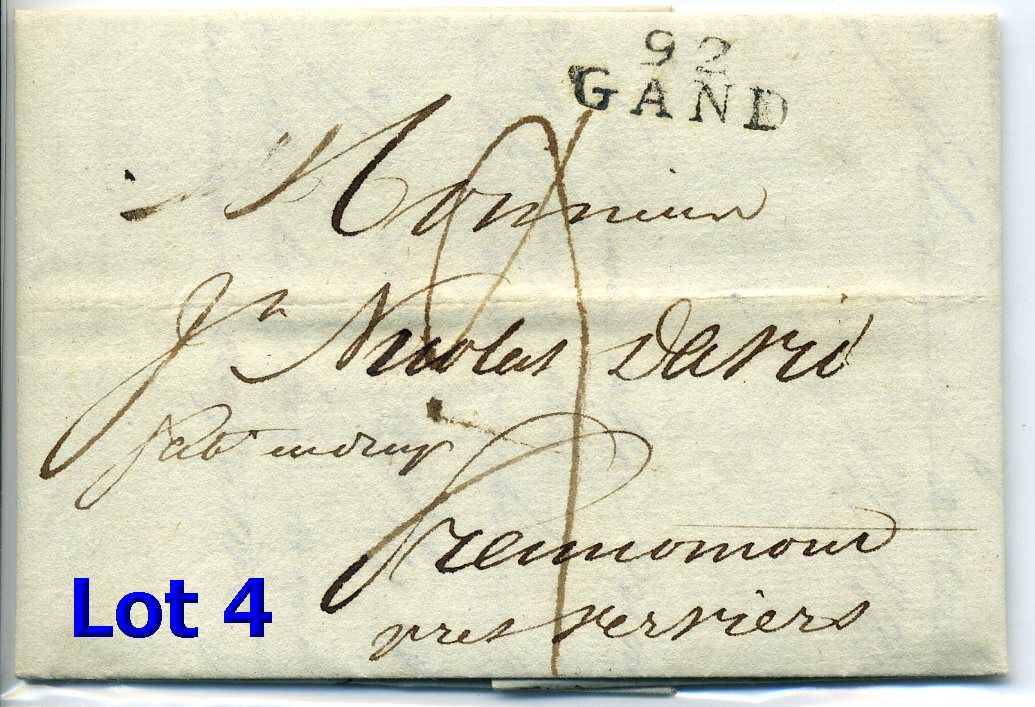 92
GAND
Monsieur
Jn Nicolas David
fabt en drap
Francomont
pres Verviers
Lot 4